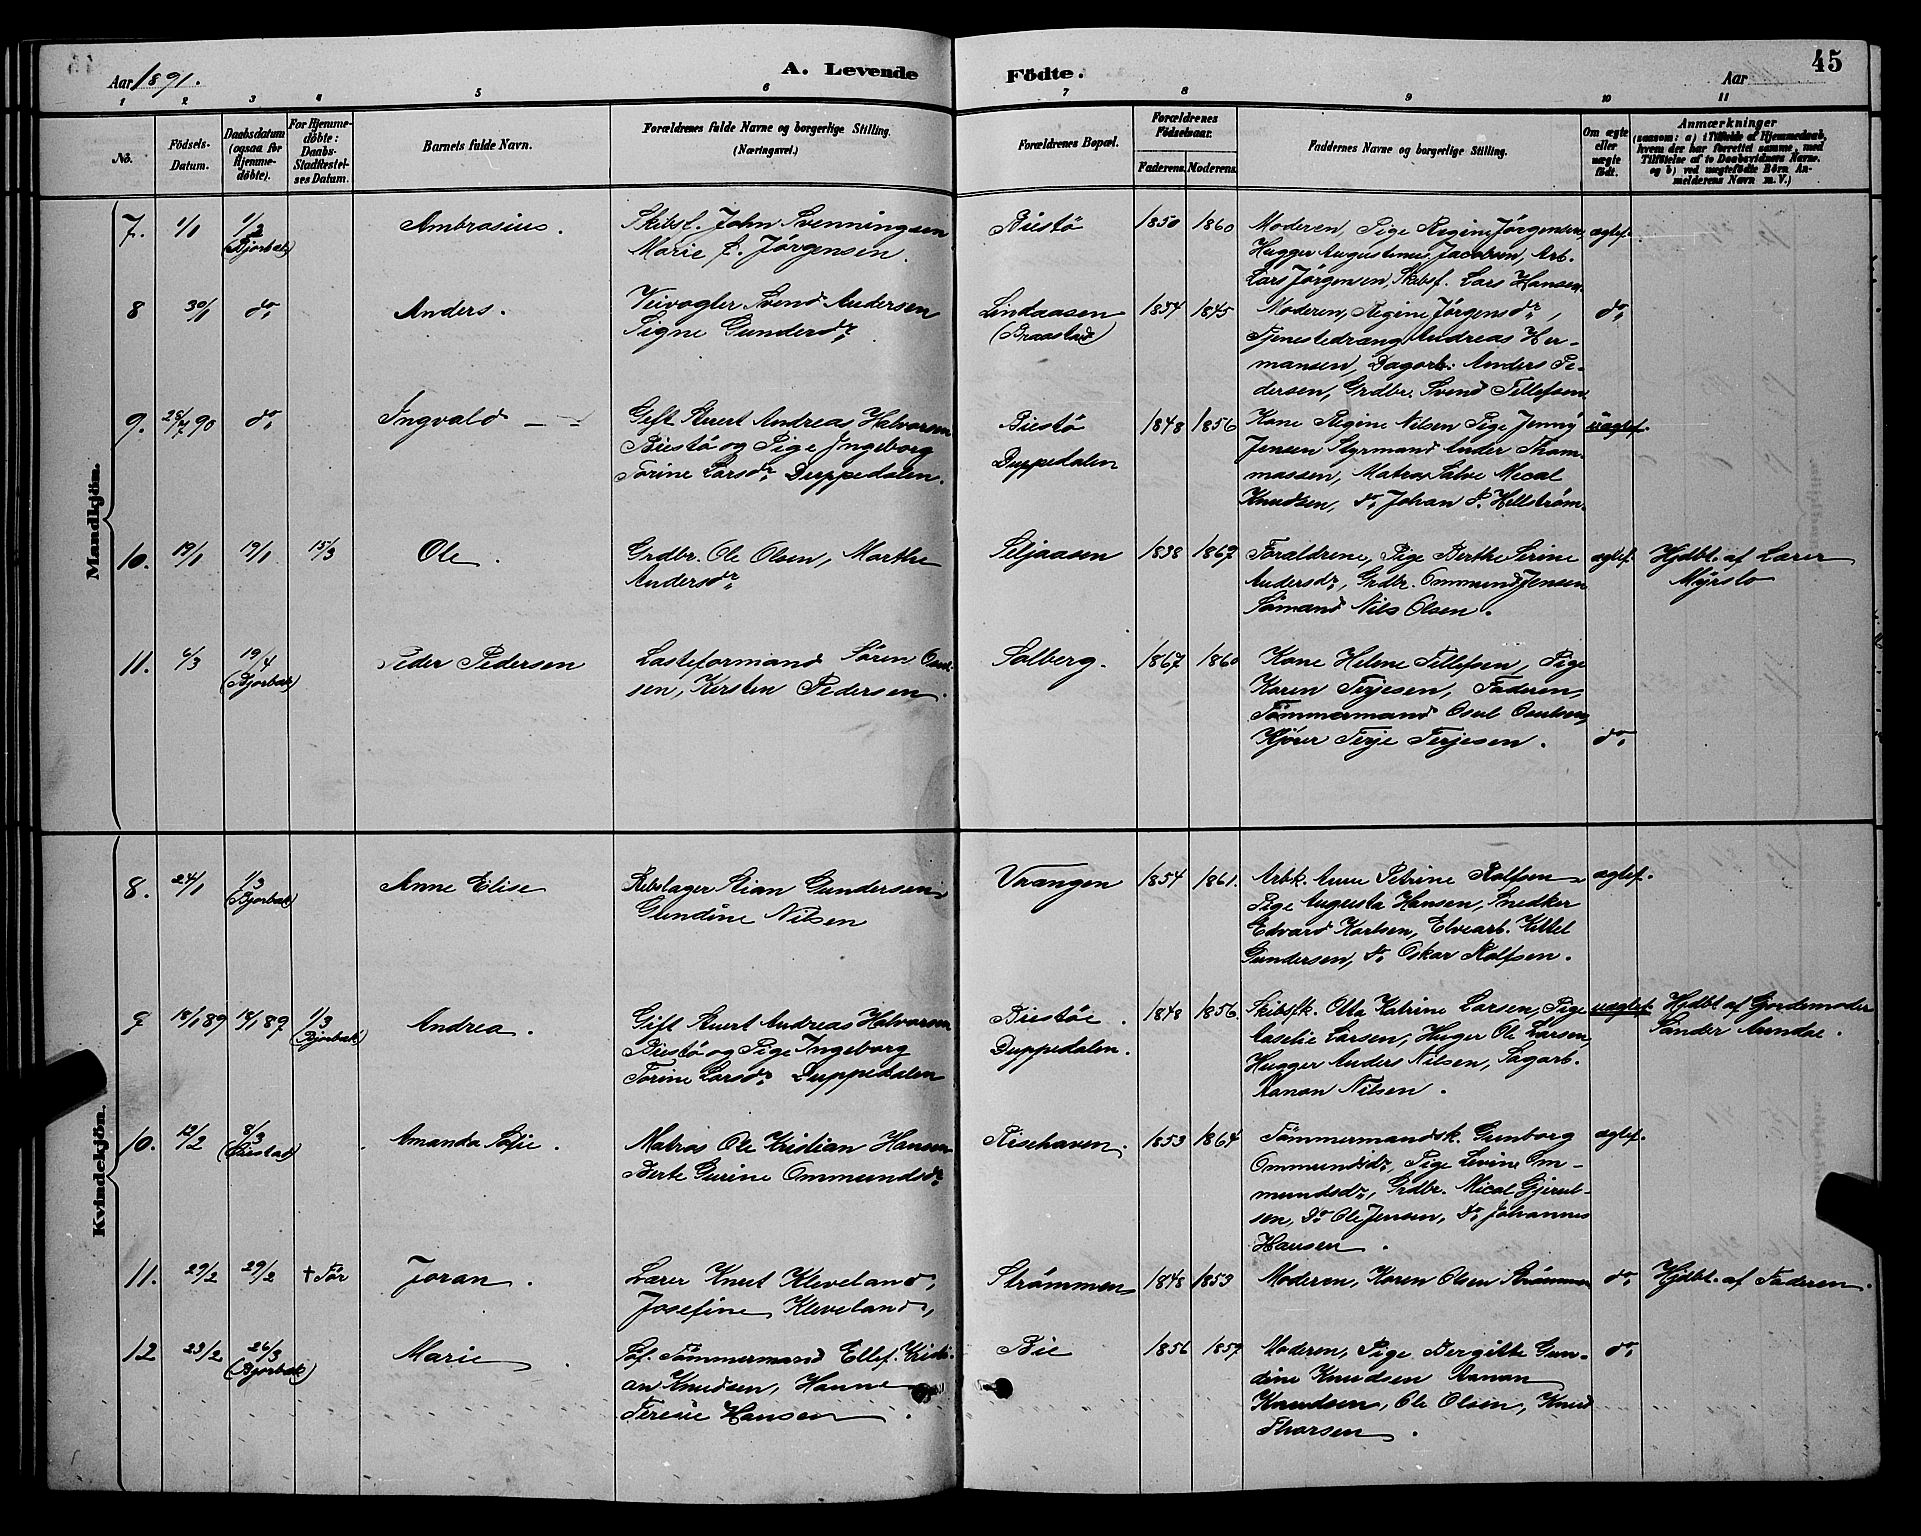 45
Aar 1891.
A. Levende
Födte.
Aar
1 2 3 4 5 6 7 8 9 10 11
No.
Födsels-
Datum.
Daabsdatum
(ogsaa for
Hjemme-
döbte).
For Hjemme-
döbte:
Daabs-
Stadfæstel-
ses Datum.
Barnets fulde Navn.
Forældrenes fulde Navne og borgerlige Stilling.
(Næringsvei.)
Forældrenes Bopæl.
Forældrenes
Födselsaar.
Faderens. Moderens.
Faddernes Navne og borgerlige Stilling.
Om ægte
eller
uægte
födt.
Anmærkninger
(saasom: a) i Tilfælde af Hjemmedaab,
hvem der har forrettet samme, med
Tilföielse af to Daabsvidners Navne,
og b) ved uægtefödte Börn An-
melderens Navn m. V.)
Mandkjön.
7. 1/1 1/3 (Bjorbæk) Ambrosius.
Skibsf. John Svenningsen
Marie J. Jörgensen.
Biestö 1850 1860
Moderen, Pige Regine Jörgensen,
Hugger Augustinus Jacobsen, Arb.
Lars Jörgensen, Skibsf. Lars Hansen
ægtef.
8 30/1 do. Anders.
Veivogter Svend Andersen
Signe Gundersdr.
Lindaasen
(Braastad)
1854 1845
Moderen, Regine Jörgensdr.,
Tjenestedreng Andreas Her-
mansen, Dagarb. Anders Pe-
dersen, Grdbr. Svend Tellefsen
do.
9. 28/7 90 do. Ingvald
Gift Anert Andreas Halvorsen
Biestö og Pige Ingeborg
Torine Larsdr. Duppedalen.
Biestö
Duppedalen
1848 1856
Kone Regine Nilsen Pige Jenny
Jensen Styrmand Ander Tham-
massen, Matros Salve Mical
Knudsen, do. Johan P. Hellström.
uægtef.
10. 19/1 19/1 15/3 Ole.
Grdbr. Ole Olsen, Marthe
Andersdr.
Seljaasen 1838 1862
Forældrene, Pige Berthe Serine
Andersdr., Grdbr. Ommund Jensen
Sömand Nils Olsen.
ægtef.
Hjdbt. af Lærer
Myrslo
11. 4/3 19/4 (Bjorbæk) Peder Pedersen
Lasteformand Sören Osul-
sen, Kirsten Pedersen.
Solberg. 1867 1860
Kone Helene Tellefsen, Pige
Karen Terjesen, Faderen,
Tömmermand Osul Osulsen,
Kjörer Terje Terjesen.
do.
Kvindekjön.
8. 24/1 1/3 (Bjorbæk) Anne Elise
Rebslager Stian Gundersen
Gundine Nilsen
Vrangen 1854 1861.
Arbk. Anne Petrine Rolfsen
Pige Augusta Hansen, Snedker
Edvard Karlsen, Elvearb. Kittel
Gundersen, do. Oskar Rolfsen.
ægtef.
9 18/1 89 18/1 89 1/3 (Bjorbæk) Andrea.
Gift Anert Andreas Halvorsen
Biestö og Pige Ingeborg
Torine Larsdr. Duppedalen
Biestöe.
Duppedalen.
1848 1856.
Skibsfk. Otta Katrine Larsen, Pige
Aaselie Larsen, Huger Ole Larsen,
Hugger Anders Nilsen, Sagarb.
Aanon Nilsen.
uægtef.
Hjdbt af Gjordemoder
Sander Aundal.
10. 12/2 8/3 Amanda Sofie.
Matros Ole Kristian Hansen
Berte Gurine Ommundsdr.
Risehaven. 1853 1864
Tömmermandsk. Gunborg
Ommundsdr., Pige Sevine Om-
mundsdr., Grdbr. Mical Gjerul-
sen, do Ole Jensen, do. Johannes
Hansen.
ægtef.
11. 29/2 29/2 † För Joran.
Lærer Knut Kleveland,
Josefine Kleveland,
Strömmen 1848 1853
Moderen, Karen Olsen Strömmen
do.
Hjdbt. af Faderen.
12 23/2 26/3 (Bjorbæk) Marie.
Sof. Tömmermand Ellef Kristi-
an Knudsen, Hanne
Teresie Hansen.
Bie 1856 1859
Moderen, Pige Bergitte Gun-
dine Knudsen Aanan
Knudsen, Ole Olsen, Knud
Tharsen.
do.